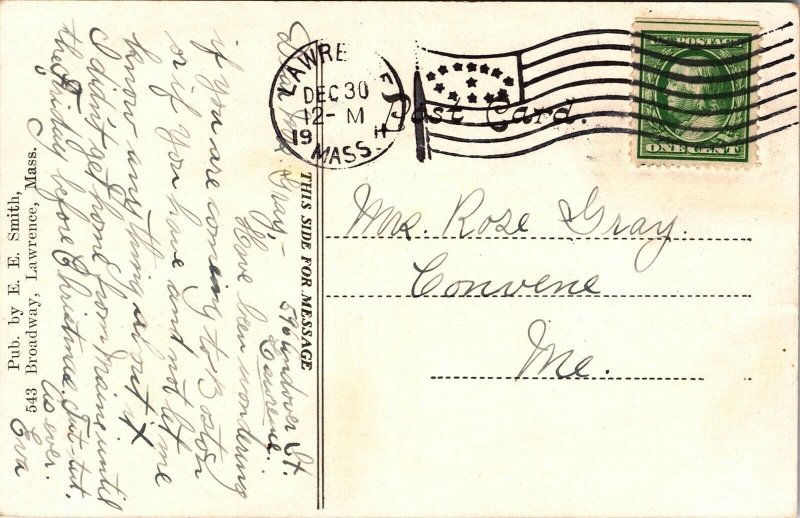 LAWRE
DEC 30
12- M
19
MASS.
Post Card.
U.S. POSTAGE
ONE CENT
THIS SIDE FOR MESSAGE
Mrs. Rose Gray.
Convene
Me.
Andover St.
Lawrence.
Dear Gray,-
Have been wondering
if you are coming to Boston
or if you have and not let me
know any thing about it
I didn't get home from Maine until
the Friday before Christmas. Tut-tut.
As ever.
Eva
Pub. by E. E. Smith,
543 Broadway, Lawrence, Mass.